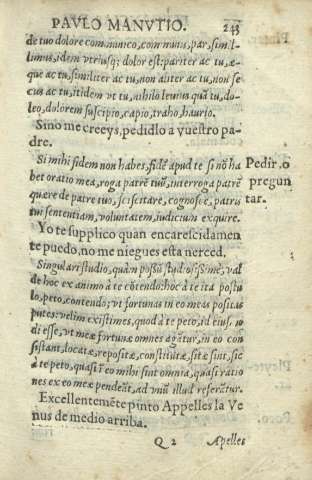 PAVLO MANVTIO. 243
de tuo dolore communico, communis, par, simil-
limus, idem vtriusq; dolor est: pariter ac tu, æ-
que ac tu, similiter ac tu, non aliter ac tu, non se
cus ac tu, itidem vt tu, nihilo leuius quã tu, do-
leo, dolorem suscipio, capio, traho, haurio.
Si no me creeys, pedidlo a vuestro pa-
dre.
Si mihi fidem non habes, fidẽ apud te si nõ ha
bet oratio mea, roga patrẽ tuũ, interroga patrẽ
quære de patre tuo, sciscitare, cognosce, patris
tui sententiam, voluntatem, iudicium exquire.
Pedir, o
pregun
tar.
Yo te supplico quan encarescidamen
te puedo, no me niegues esta merced.
Singulari studio, quàm possũ studiosissimè, val
de hoc ex animo à te cõtendo: hoc à te ita postu
lo, peto, contendo; vt fortunas in eo meas positas
putes: velim existimes, quod à te peto, id eius, no
di esse, vt meæ fortunæ omnes agãtur, in eo con
sistant, locatæ, repositæ, constitutæ, sitæ sint, sic
à te peto, quasi eo mihi sint omnia, quasi ratio
nes ex eo meæ pendeãt, ad vnũ illud referãtur.
Excellentemẽte pinto Appelles la Ve
nus de medio arriba.
Q 2 Apelles